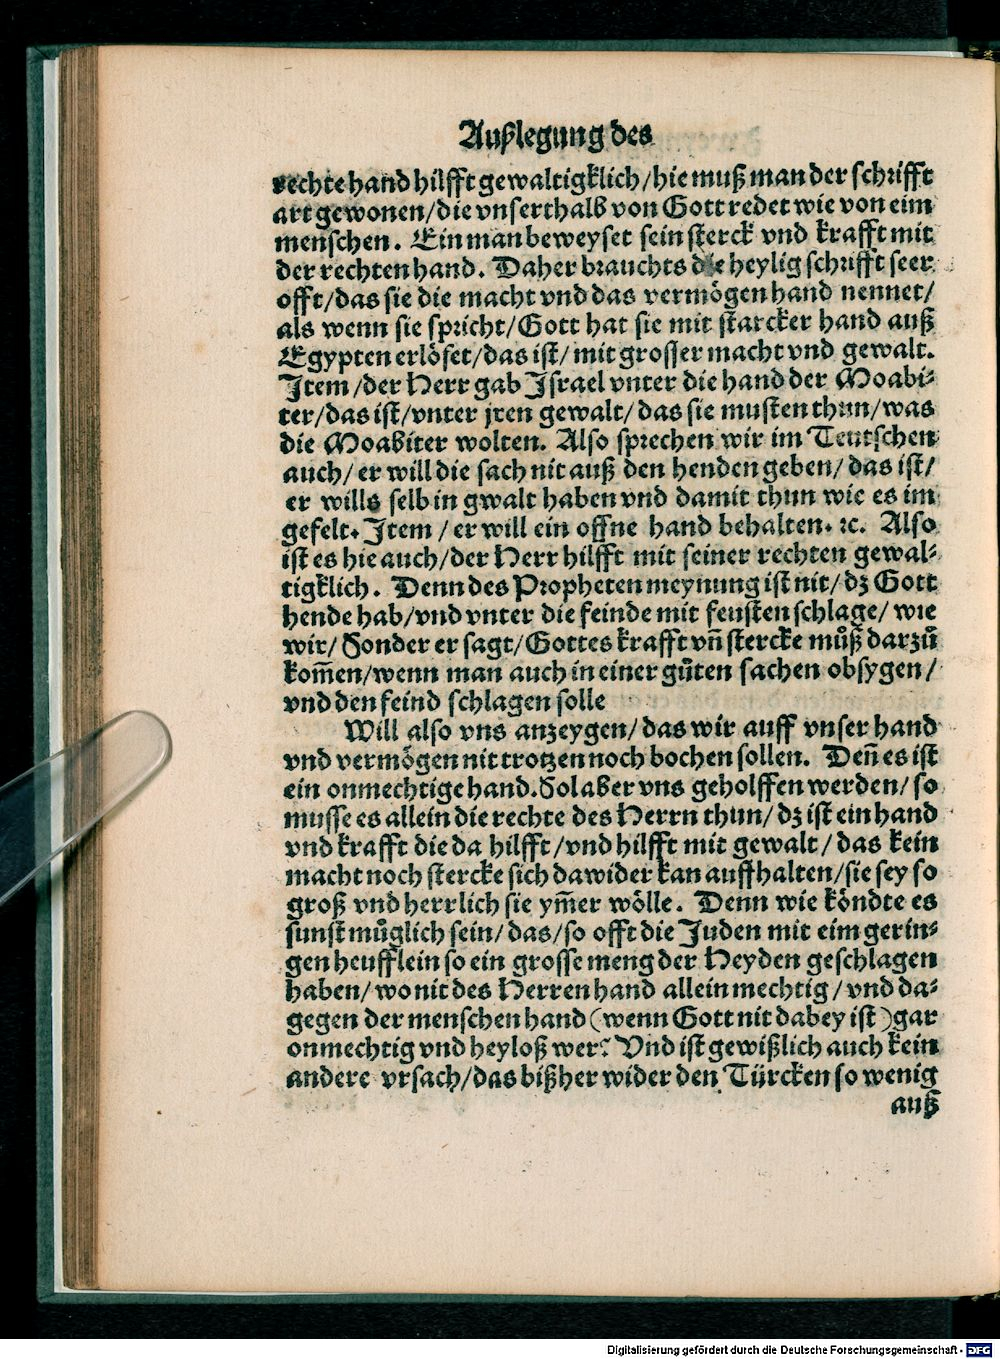 Außlegung des
rechte hand hilfft gewaltigklich/ hie muß man der schrifft
art gewonen/ die vnserthalb von Gott redet wie von eim
menschen. Ein man beweyset sein sterck vnd krafft mit
der rechten hand. Daher brauchts die heylig schrifft seer
offt/ das sie die macht vnd das vermögen hand nennet/
als wenn sie spricht/ Gott hat sie mit starcker hand auß
Egypten erlöset/ das ist/ mit grosser macht vnd gewalt.
Item/ der Herr gab Israel vnter die hand der Moabi-
ter/ das ist/ vnter jren gewalt/ das sie musten thun/ was
die Moabiter wolten. Also sprechen wir im Teutschen
auch/ er will die sach nit auß den henden geben/ das ist/
er wills selb in gwalt haben vnd damit thun wie es im
gefelt. Item/ er will ein offne hand behalten. ꝛc. Also
ist es hie auch/ der Herr hilfft mit seiner rechten gewal-
tigklich. Denn des Propheten meynung ist nit/ dz Gott
hende hab/ vnd vnter die feinde mit feusten schlage/ wie
wir/ Sonder er sagt/ Gottes krafft vñ stercke můß darzů
kom̄en/ wenn man auch in einer gůten sachen obsygen/
vnd den feind schlagen solle
Will also vns anzeygen/ das wir auff vnser hand
vnd vermögen nit trotzen noch bochen sollen. Deñ es ist
ein onmechtige hand. Sol aber vns geholffen werden/ so
musse es allein die rechte des Herrn thun/ dz ist ein hand
vnd krafft die da hilfft/ vnd hilfft mit gewalt/ das kein
macht noch stercke sich dawider kan auffhalten/ sie sey so
groß vnd herrlich sie ym̄er wölle. Denn wie köndte es
sunst můglich sein/ das/ so offt die Juden mit eim gerin-
gen heufflein so ein grosse meng der Heyden geschlagen
haben/ wo nit des Herren hand allein mechtig/ vnd da-
gegen der menschen hand (wenn Gott nit dabey ist) gar
onmechtig vnd heyloß wer? Vnd ist gewißlich auch kein
andere vrsach/ das bißher wider den Türcken so wenig
auß
Digitalisierung gefördert durch die Deutsche Forschungsgemeinschaft - DFG